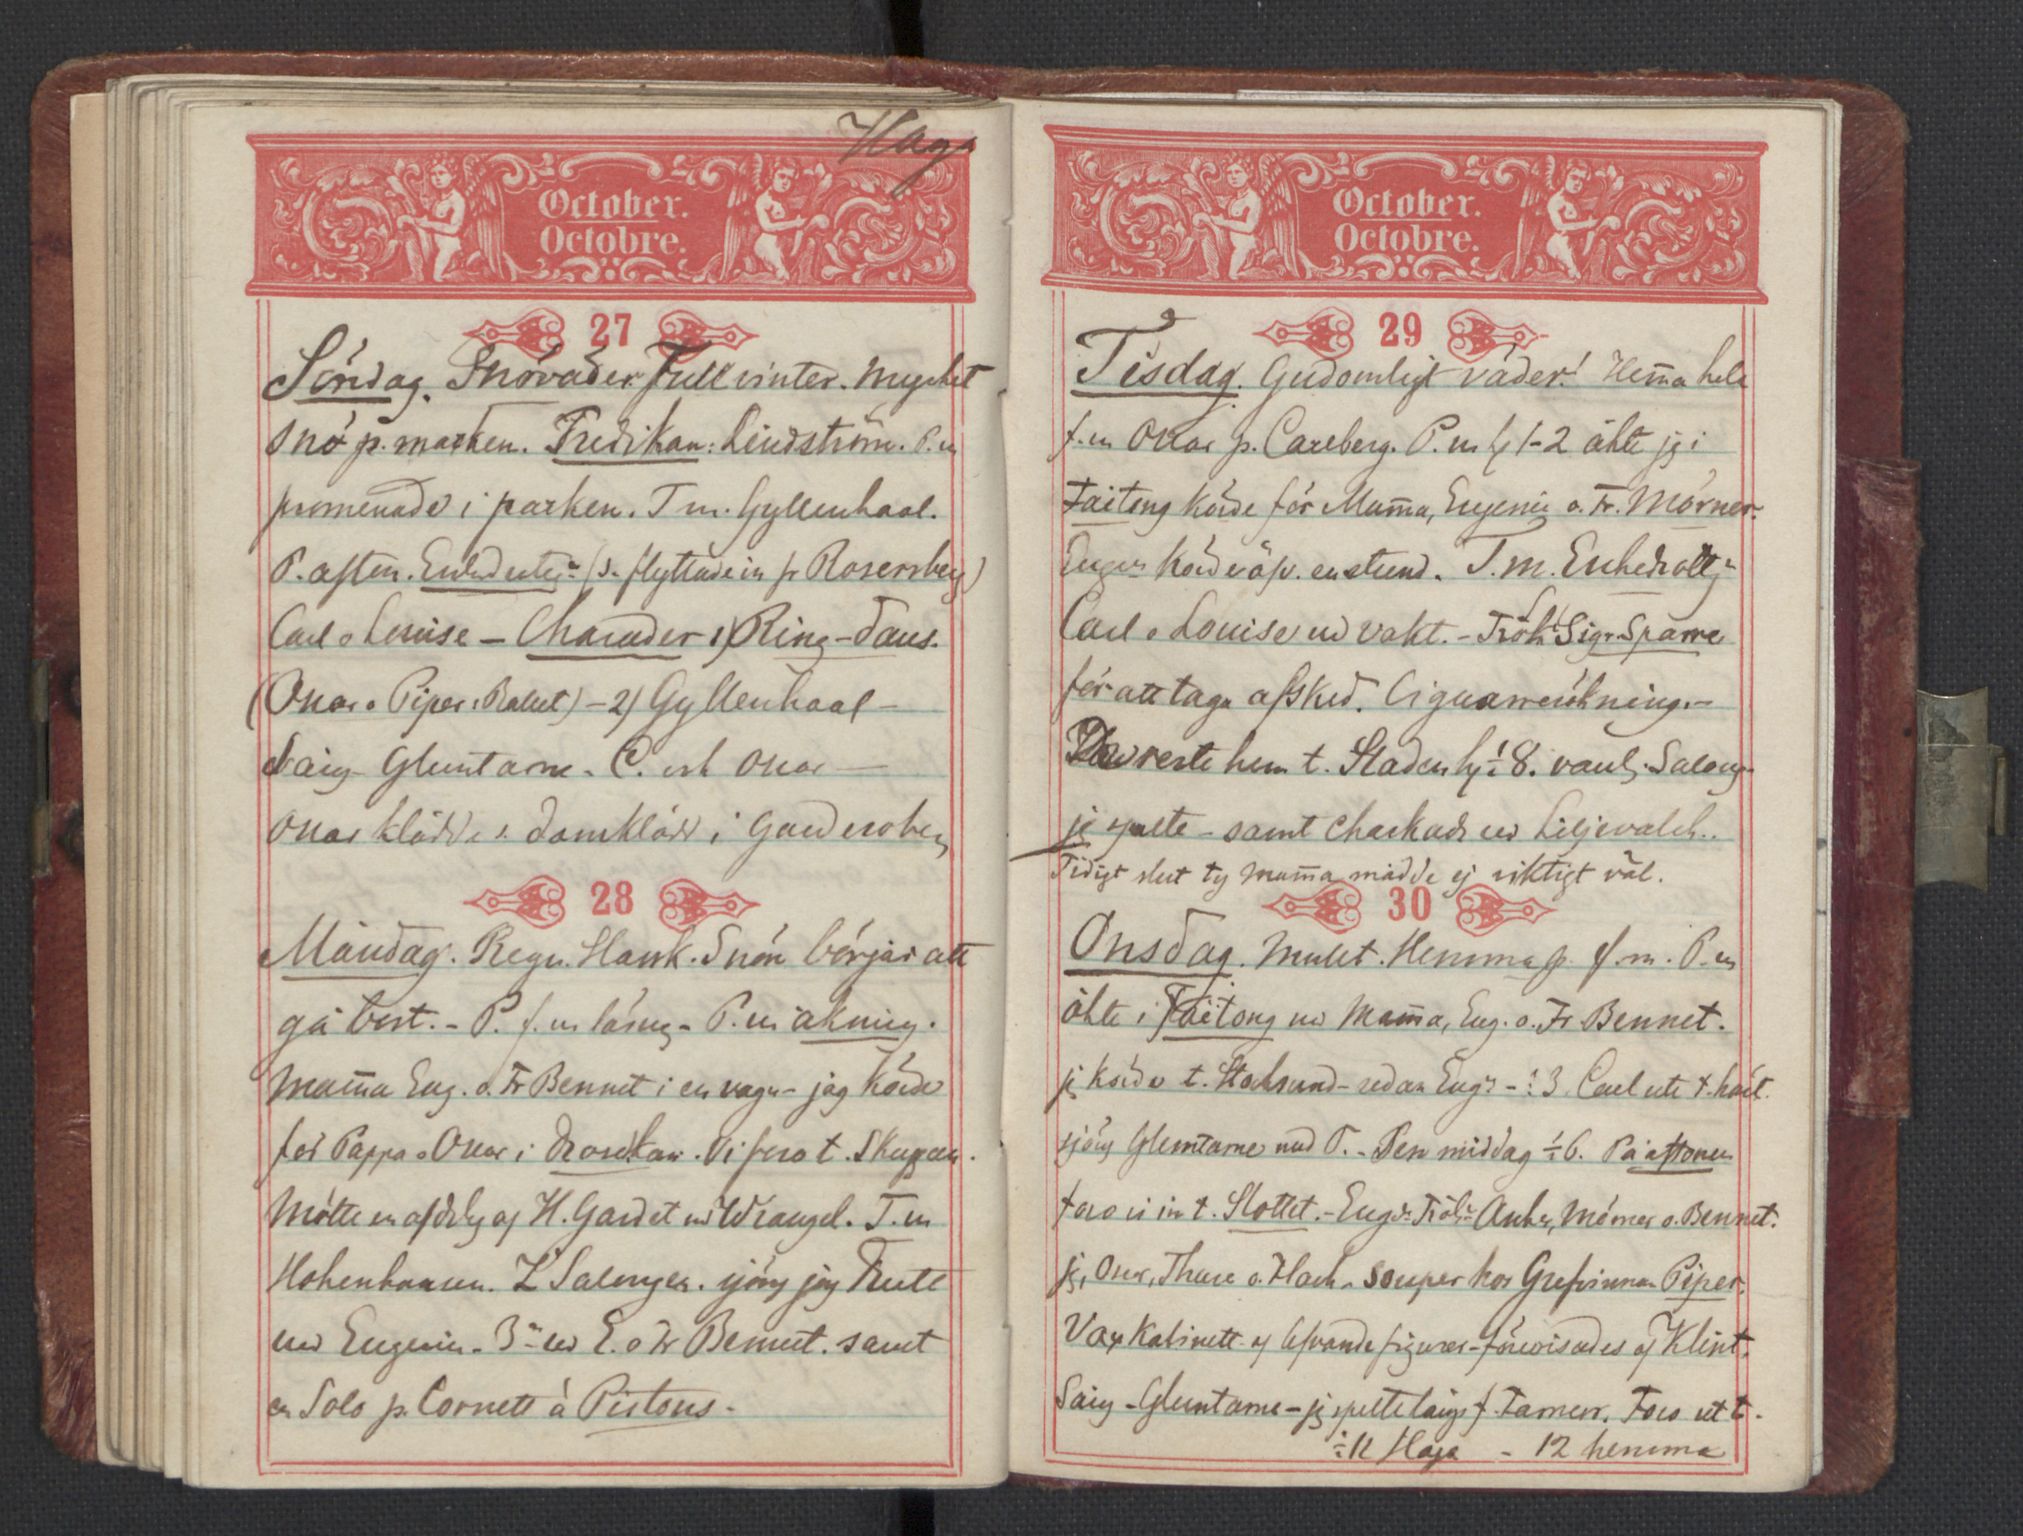 Haga
October.
Octobre.
27
Söndag. Snöväder Full vinter. Mycket
snö p. marken. Predikan: Lindström. P. m
promenade i parken. T m. Gyllenhaal.
P. aften. (s. flyttade in fr Rosersberg)
Carl o Louise – Charader 1) Ring-dans.
(Oscar o Piper: Ballet) – 2) Gyllenhaal –
Saig Gluntarne – C. och Oscar —
Oscar klädde s. damkläder i Garderoben
28
Måndag. Regn. Slask. Snön börjar att
gå bort. – P. f. m läsng – P. m åkning.
Mam̄a Eug. o. Fr Bennet i en vagn – jag körde
för Pappa o Oscar i Droskan. Vi foro t.
Mötte en afdelg af H. Gardet m Wrangel. T. m
Hohenhausen. I Salongen. sjöng jag Duett
med Eugenie – 3 m E. o Fr Bennet. samt
en Solo p. Cornett à Pistons –
October.
Octobre.
29
Tisdag. Gudomligt väder! Hem̄a hela
f. m Oscar p. Carlberg. P. m kl 1–2 åkte jg i
Faitong körde för Mam̄a, Eugenie o. Fr. Mörner.
Eugen körde äfv. en stund. T. m.
Carl o Louise m vakt. – Frök. Sigr. Sparre
för att taga afsked.
reste hem t. Staden kl ½ 8. vanl. Salong
jg spelte – samt charkade m Liljevalch..
Tidigt slut ty Mam̄a mådde ej riktigt väl.
30
Onsdag. Mulet. Hemma p. f. m. P. m
åkte i Faitong m Mam̄a, Eug. o. Fr Bennet.
jg körde t. Stocksund – sedan Eug. – ½ 3. Carl ute
sjöng Gluntarne med O. – Sen middag ½ 6. På aftonen
foro vi in t. Slottet. – Eug. Frök. Anker, Mörner o. Bennet.
jg, Oscar, Thure o. – souper hos Grefvinnan Piper.
Vax Kabinett af lefvande figurer – förevisades af Klint.
Saig – Gluntarne – jg spelte Foro ut t.
½ 12 Haga – 12 hemma